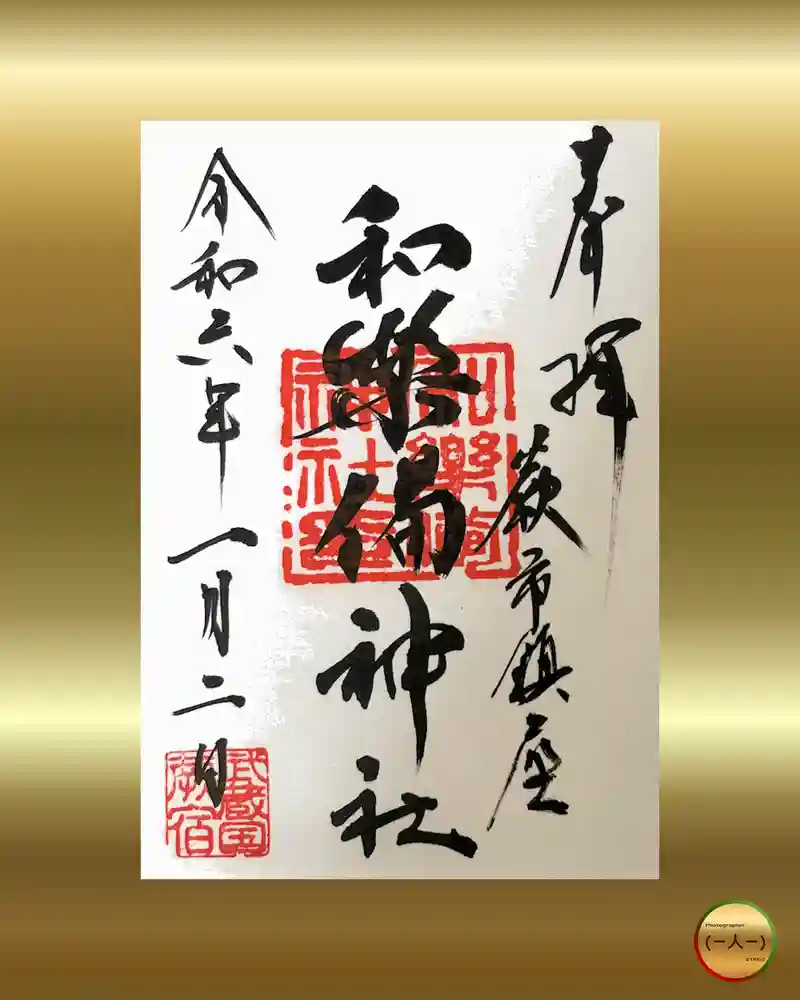 奉拝
蕨市鎮座
和樂備神社
和樂備
神社
令和六年一月二日
武蔵国
蕨宿
Photographer
(一人一)